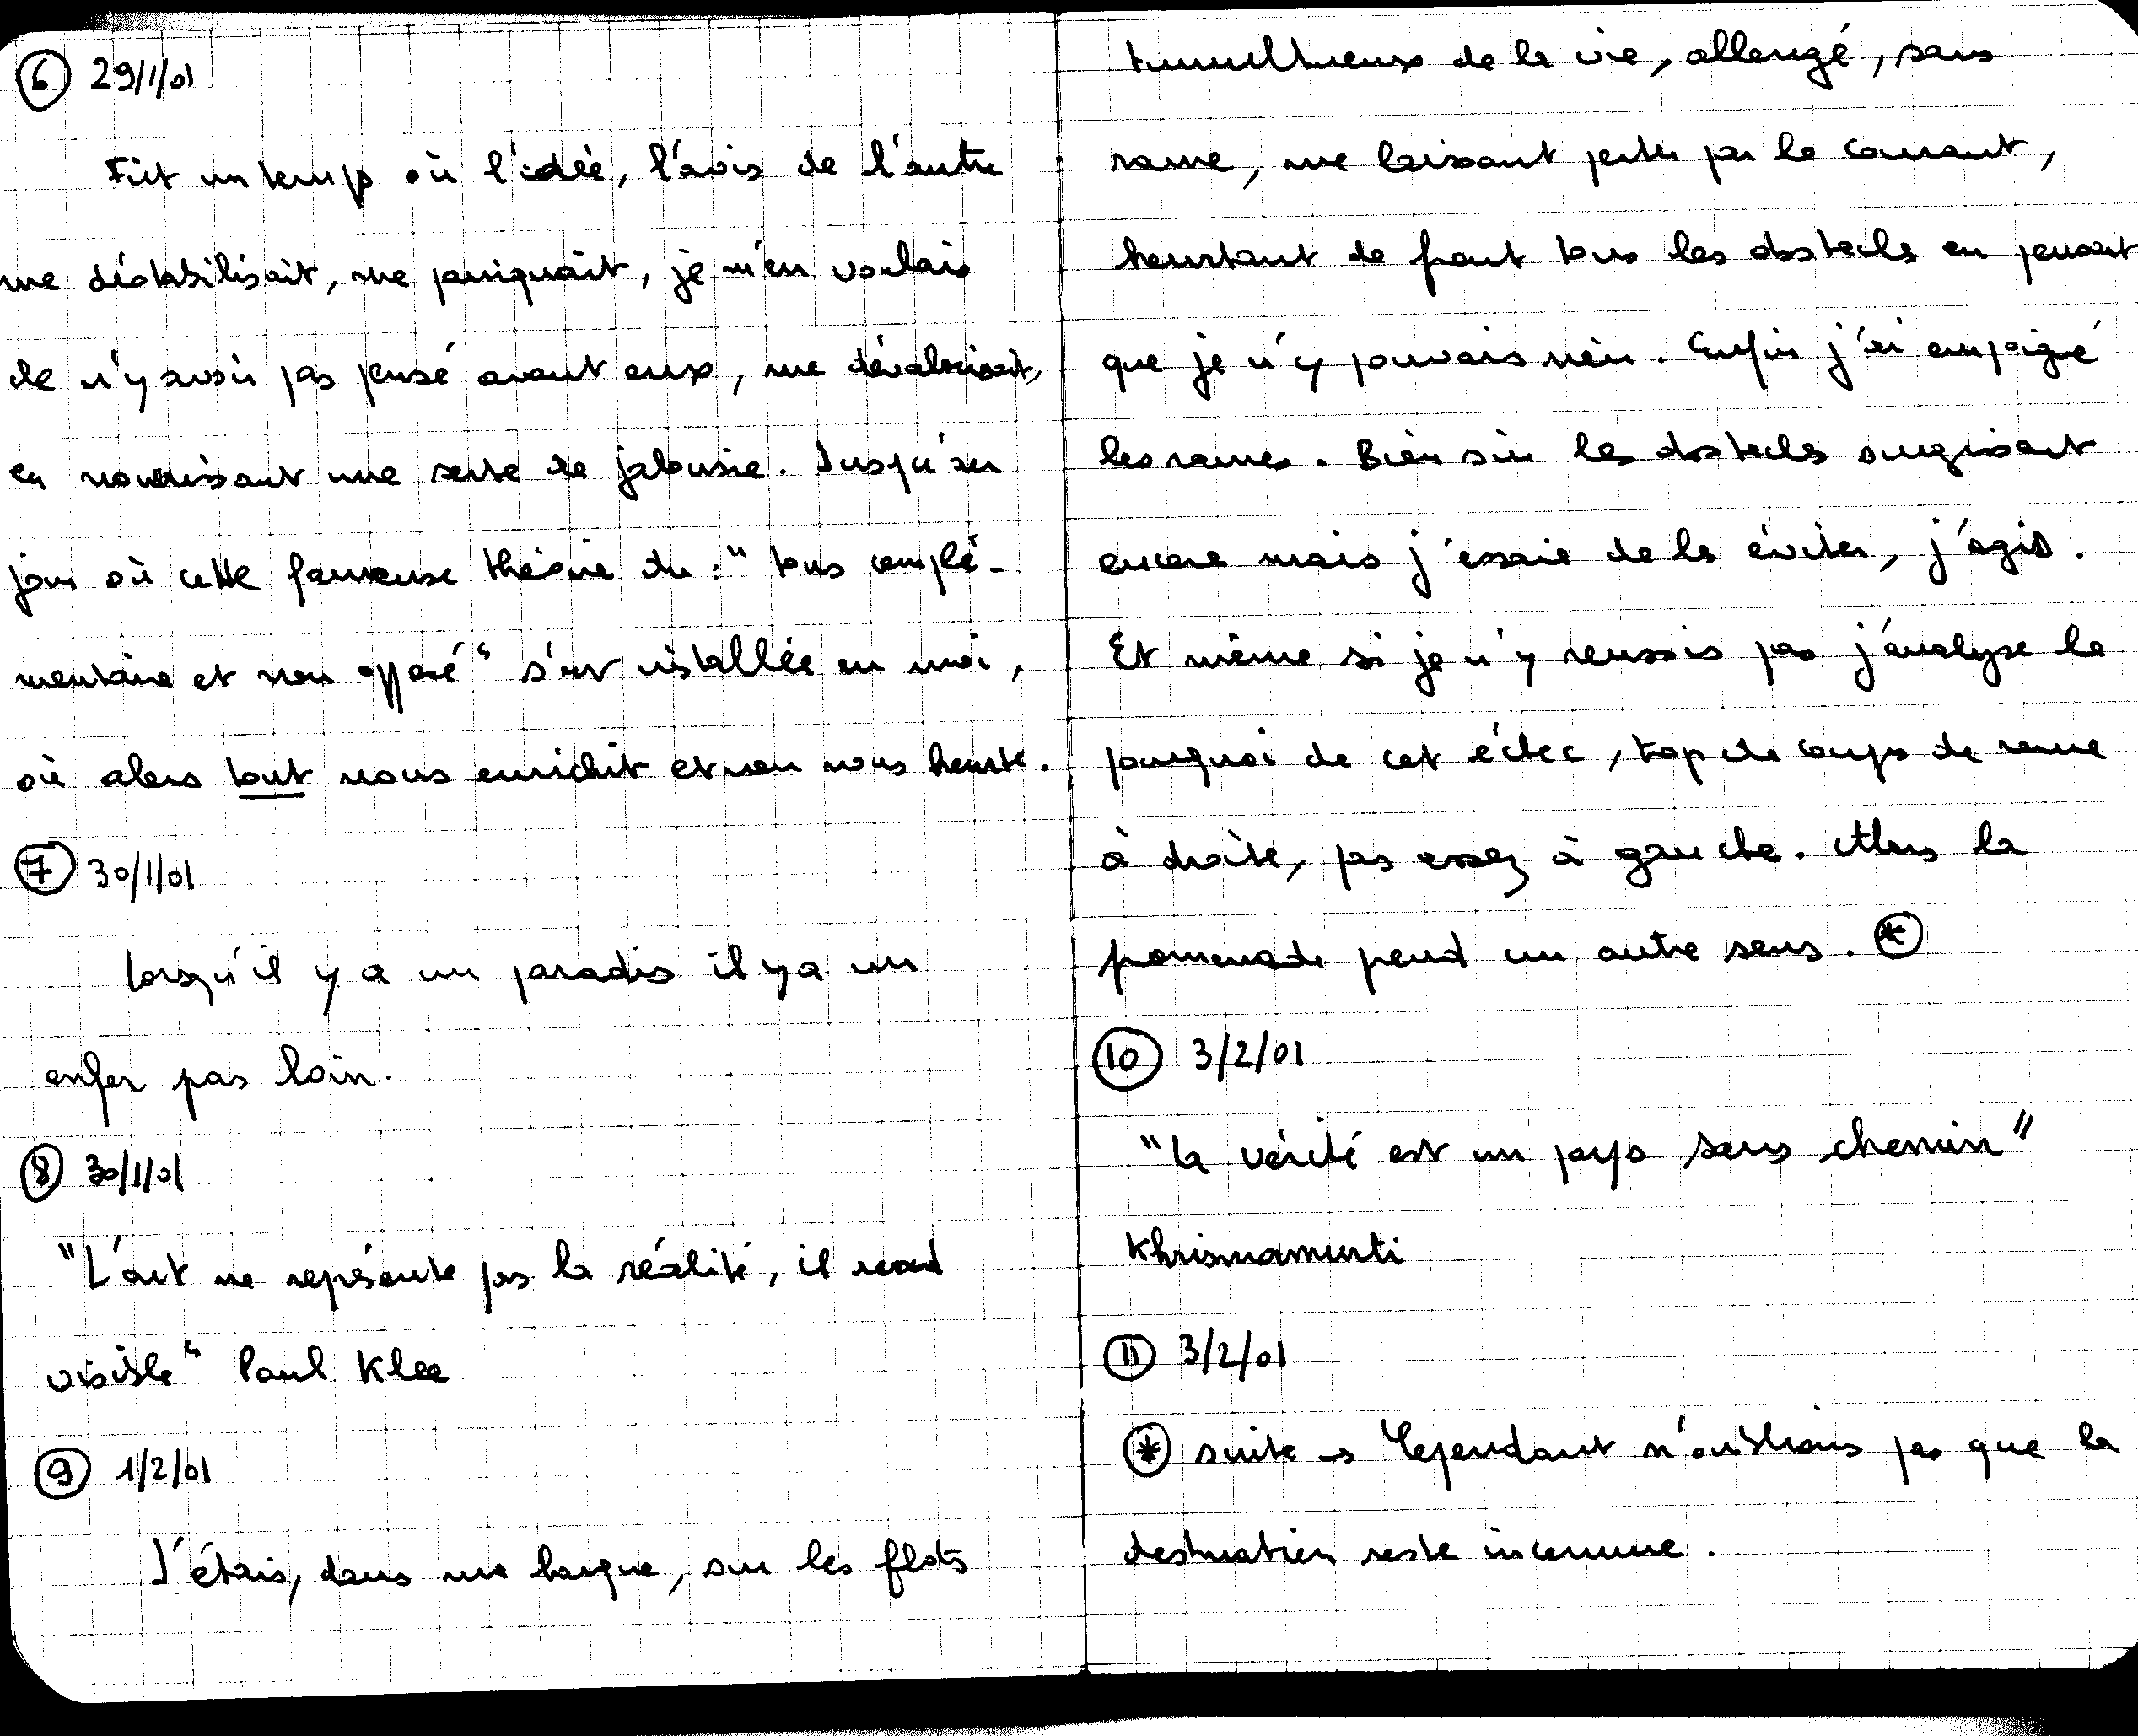 ⑥ 29/1/01
Fut un temps où l'idée, l'avis de l'autre
me déstabilisait, me paniquait, je m'en voulais
de n'y avoir pas pensé avant eux, me dévalorisait,
en nourrissant une sorte de jalousie. Jusqu'au
jour où cette fameuse théorie du : "tous complé-
mentaire et non opposé" s'est installée en moi,
où alors tout nous enrichit et non nous heurte.
⑦ 30/1/01
Lorsqu'il y a un paradis il y a un
enfer pas loin.
⑧ 30/1/01
"L'art ne représente pas la réalité, il rend
visible" Paul Klee
⑨ 1/2/01
J'étais, dans ma barque, sur les flots
tumultueux de la vie, allongé, sans
rame, me laissant porter par le courant,
heurtant de front tous les obstacles en pensant
que je n'y pouvais rien. Enfin j'ai empoigné
les rames. Bien sûr les obstacles surgissent
encore mais j'essaie de les éviter, j'agis.
Et même si je n'y reussis pas j'analyse le
pourquoi de cet échec, trop de coups de rame
à droite, pas assez à gauche. Alors la
promenade prend un autre sens. ⊛
⑩ 3/2/01
"La vérité est un pays sans chemin"
Khrisnamurti
⑪ 3/2/01
⊛ suite → Cependant n'oublions pas que la
destination reste inconnue.